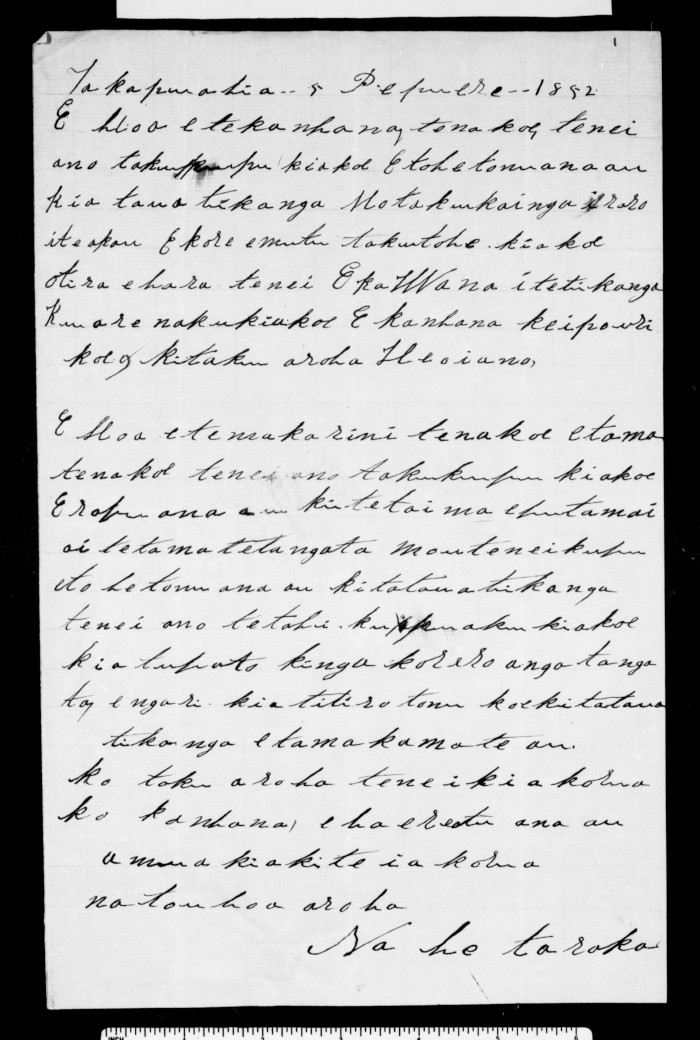 1
Takapuahia-- 5 Pepuere--1852
E Hoa etekanhana, tenakoe, tenei
ano takukupu kiakoe Etohetonuana au
kia taua tikanga Motakukainga iraro
iteakau Ekore emutu takutohe. kiakoe
otira ehara tenei Eka Wana itetikanga
Kuare nakukiakoe Ekanhana keipouri
koe, kitaku aroha Heoiano,
E Hoa etemakarini tenakoe etama
tenakoe tenei ano takukupu kiakoe
Erapu ana au kitetaima eputamai
ai tetamatetangata mouteneikupu
etohetonu ana au kitataua tikanga
tenei ano tetahi. kupuaku kiakoe
kiatupato kinga korero angatanga
ta, engari. kiatitiro tonu koekitataua
tikanga etamakamate au.
ko taku aroha teneikiakorua
ko kanhana, ehaereatu ana au
amua kiakite ia korua
natouhoa aroha
Na he taraka